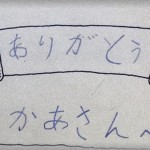 ありがとう
かあさんへ